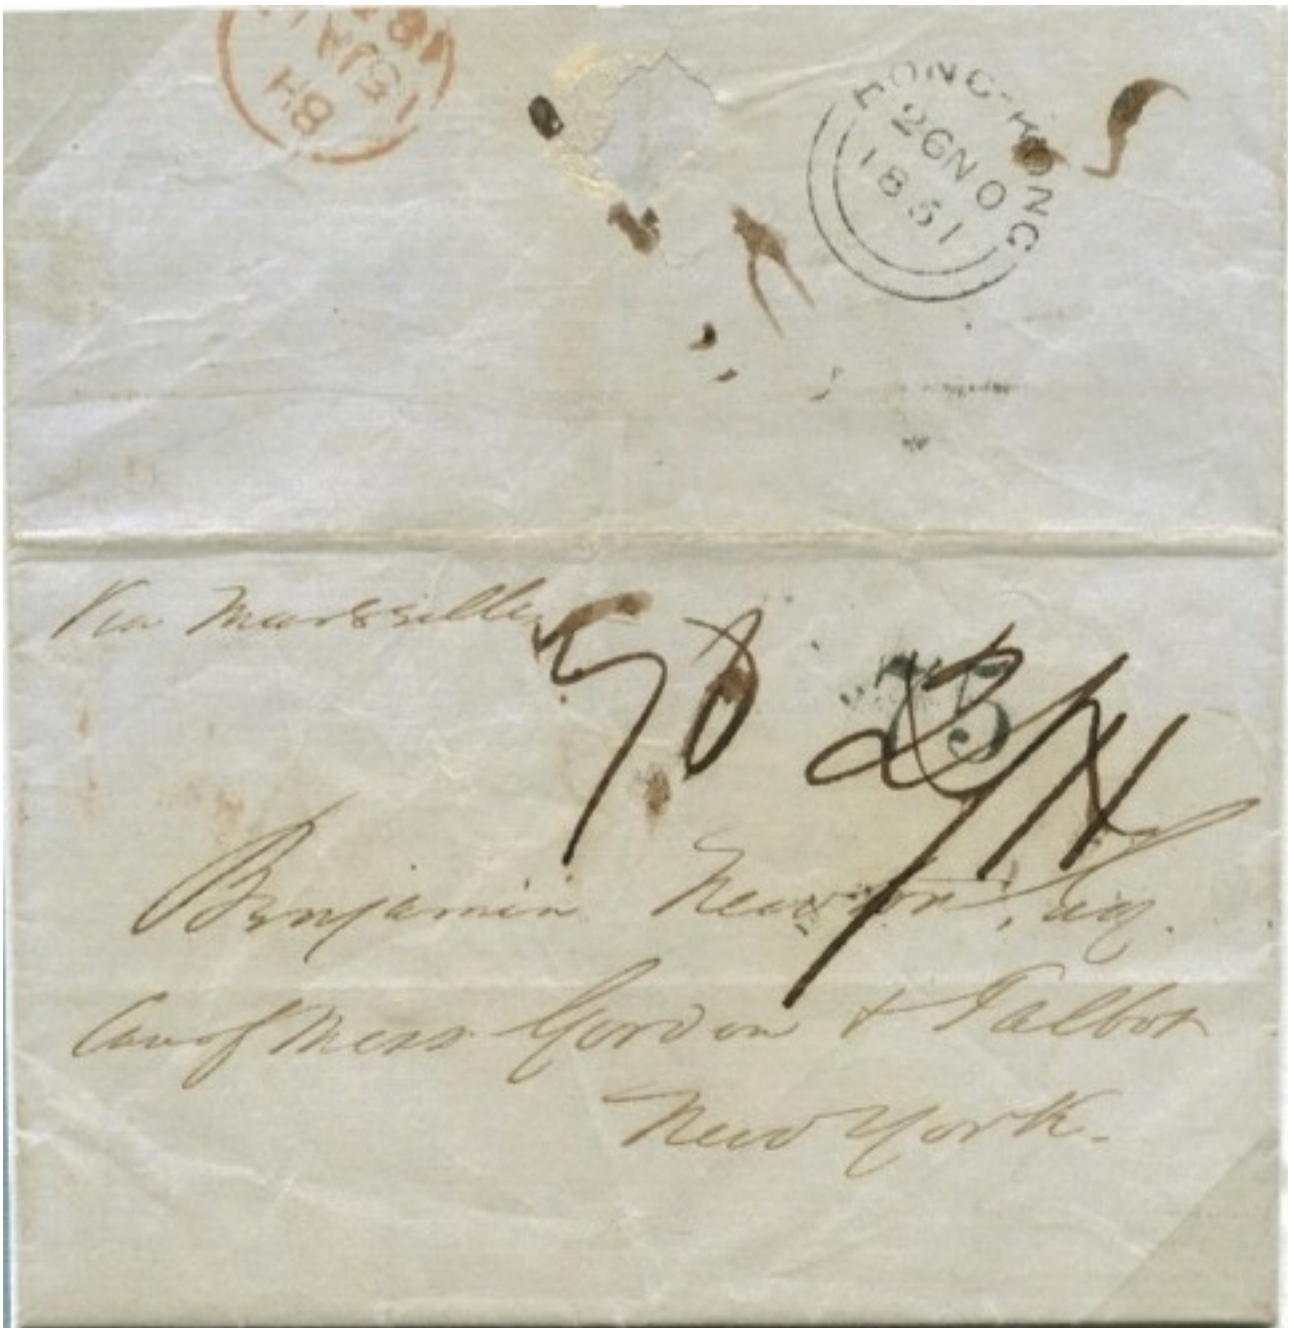 BH
5JA
18
HONG-KONG
26NO
1851
Via Marseilles
75
Benjamin Newton, Esq.
Care of Mess Gordon & Talbot
New York.